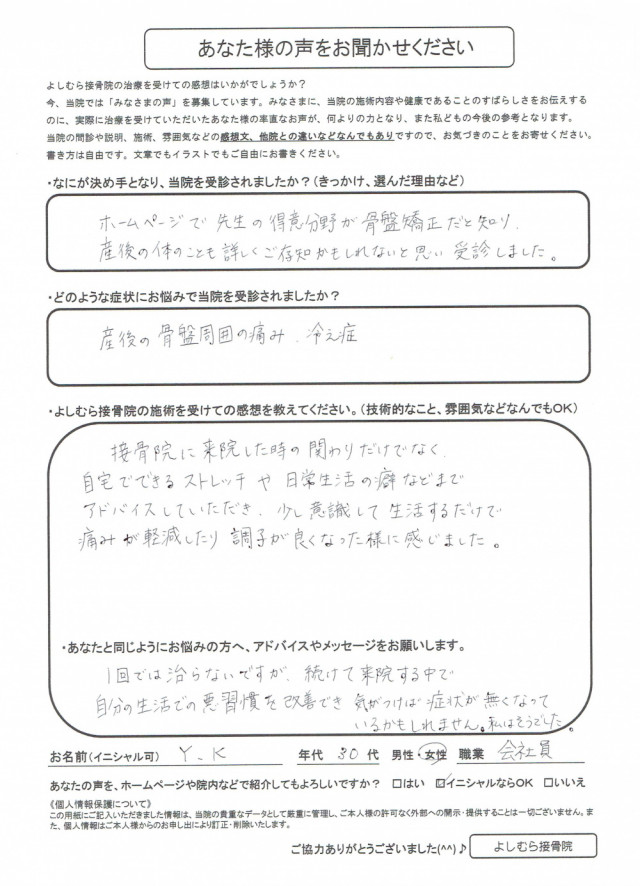 あなた様の声をお聞かせください
よしむら接骨院の治療を受けての感想はいかがでしょうか？
今、当院では「みなさまの声」を募集しています。みなさまに、当院の施術内容や健康であることのすばらしさをお伝えする
のに、実際に治療を受けていただいたあなた様の率直なお声が、何よりの力となり、また私どもの今後の参考となります。
当院の問診や説明、施術、雰囲気などの感想文、他院との違いなどなんでもありですので、お気づきのことをお寄せください。
書き方は自由です。文章でもイラストでもご自由にお書きください。
・なにが決め手となり、当院を受診されましたか？（きっかけ、選んだ理由など）
ホームページで先生の得意分野が骨盤矯正だと知り、
産後の体のことも詳しくご存知かもしれないと思い受診しました。
・どのような症状にお悩みで当院を受診されましたか？
産後の骨盤周囲の痛み、冷え症
・よしむら接骨院の施術を受けての感想を教えてください。（技術的なこと、雰囲気などなんでもOK）
接骨院に来院した時の関わりだけでなく、
自宅でできるストレッチや日常生活の癖などまで
アドバイスしていただき、少し意識して生活するだけで
痛みが軽減したり調子が良くなった様に感じました。
・あなたと同じようにお悩みの方へ、アドバイスやメッセージをお願いします。
1回では治らないですが、続けて来院する中で
自分の生活での悪習慣を改善でき気がつけば症状が無くなって
いるかもしれません。私はそうでした。
お名前（イニシャル可） Y.K 年代 30 代 男性・女性 職業 会社員
あなたの声を、ホームページや院内などで紹介してもよろしいですか？ □はい ☑イニシャルならOK □いいえ
《個人情報保護について》
この用紙にご記入いただきました情報は、当院の貴重なデータとして厳重に管理し、ご本人様の許可なく外部への開示・提供することは一切ございません。ま
た、個人情報はご本人様からのお申し出により訂正・削除いたします。
ご協力ありがとうございました(^^)♪ よしむら接骨院